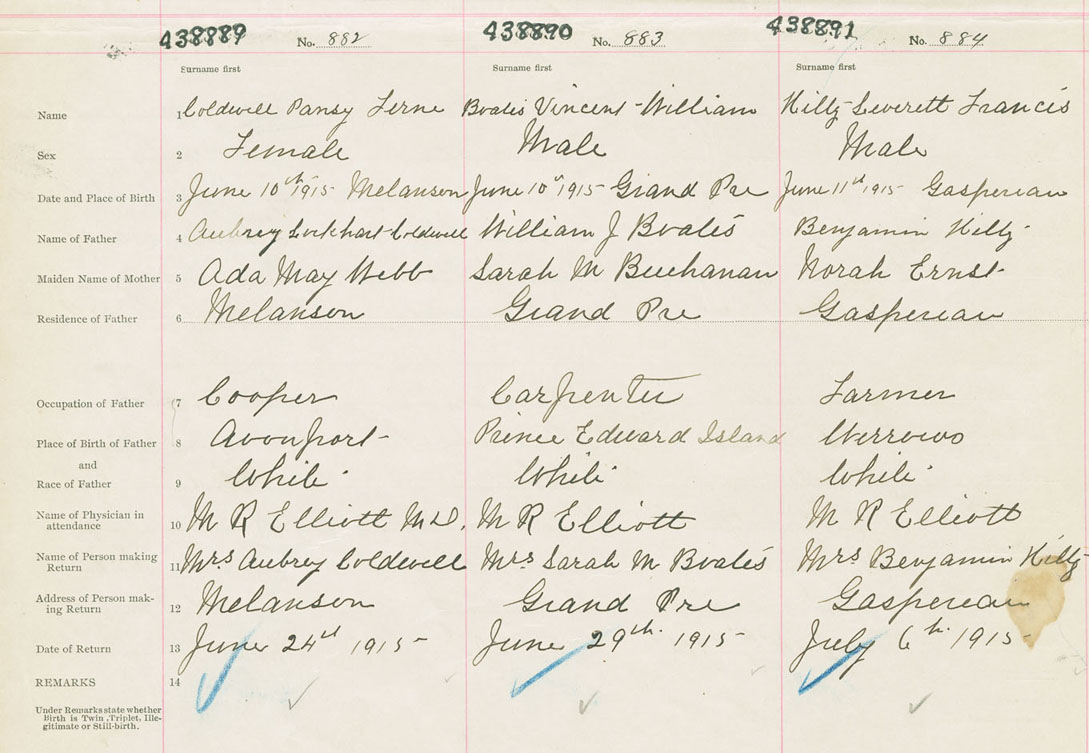 438889 No. 882 438890 No. 883 438891 No. 884
Surname first Surname first Surname first
Name 1 Coldwell Pansy Ferne Boates Vincent William Hiltz Leverett Francis
Sex 2 Female Male Male
Date and Place of Birth 3 June 10th 1915 Melanson June 10th 1915 Grand Pre June 11th 1915 Gaspereau
Name of Father 4 Aubrey Lockhart Coldwell William J Boates Benjamin Hiltz
Maiden Name of Mother 5 Ada May Webb Sarah M Buchanan Norah Ernst
Residence of Father 6 Melanson Grand Pre Gaspereau
Occupation of Father 7 Cooper Carpenter Farmer
Place of Birth of Father 8 Avonport Prince Edward Island
and
Race of Father 9 White White White
Name of Physician in
attendance 10 M R Elliott M.D. M R Elliott M R Elliott
Name of Person making
Return 11 Mrs Aubrey Coldwell Mrs Sarah M Boates Mrs Benjamin Hiltz
Address of Person mak-
ing Return 12 Melanson Grand Pre Gaspereau
Date of Return 13 June 24th 1915 June 29th 1915 July 6th 1915
REMARKS 14
Under Remarks state whether
Birth is Twin, Triplet, Ille-
gitimate or Still-birth.